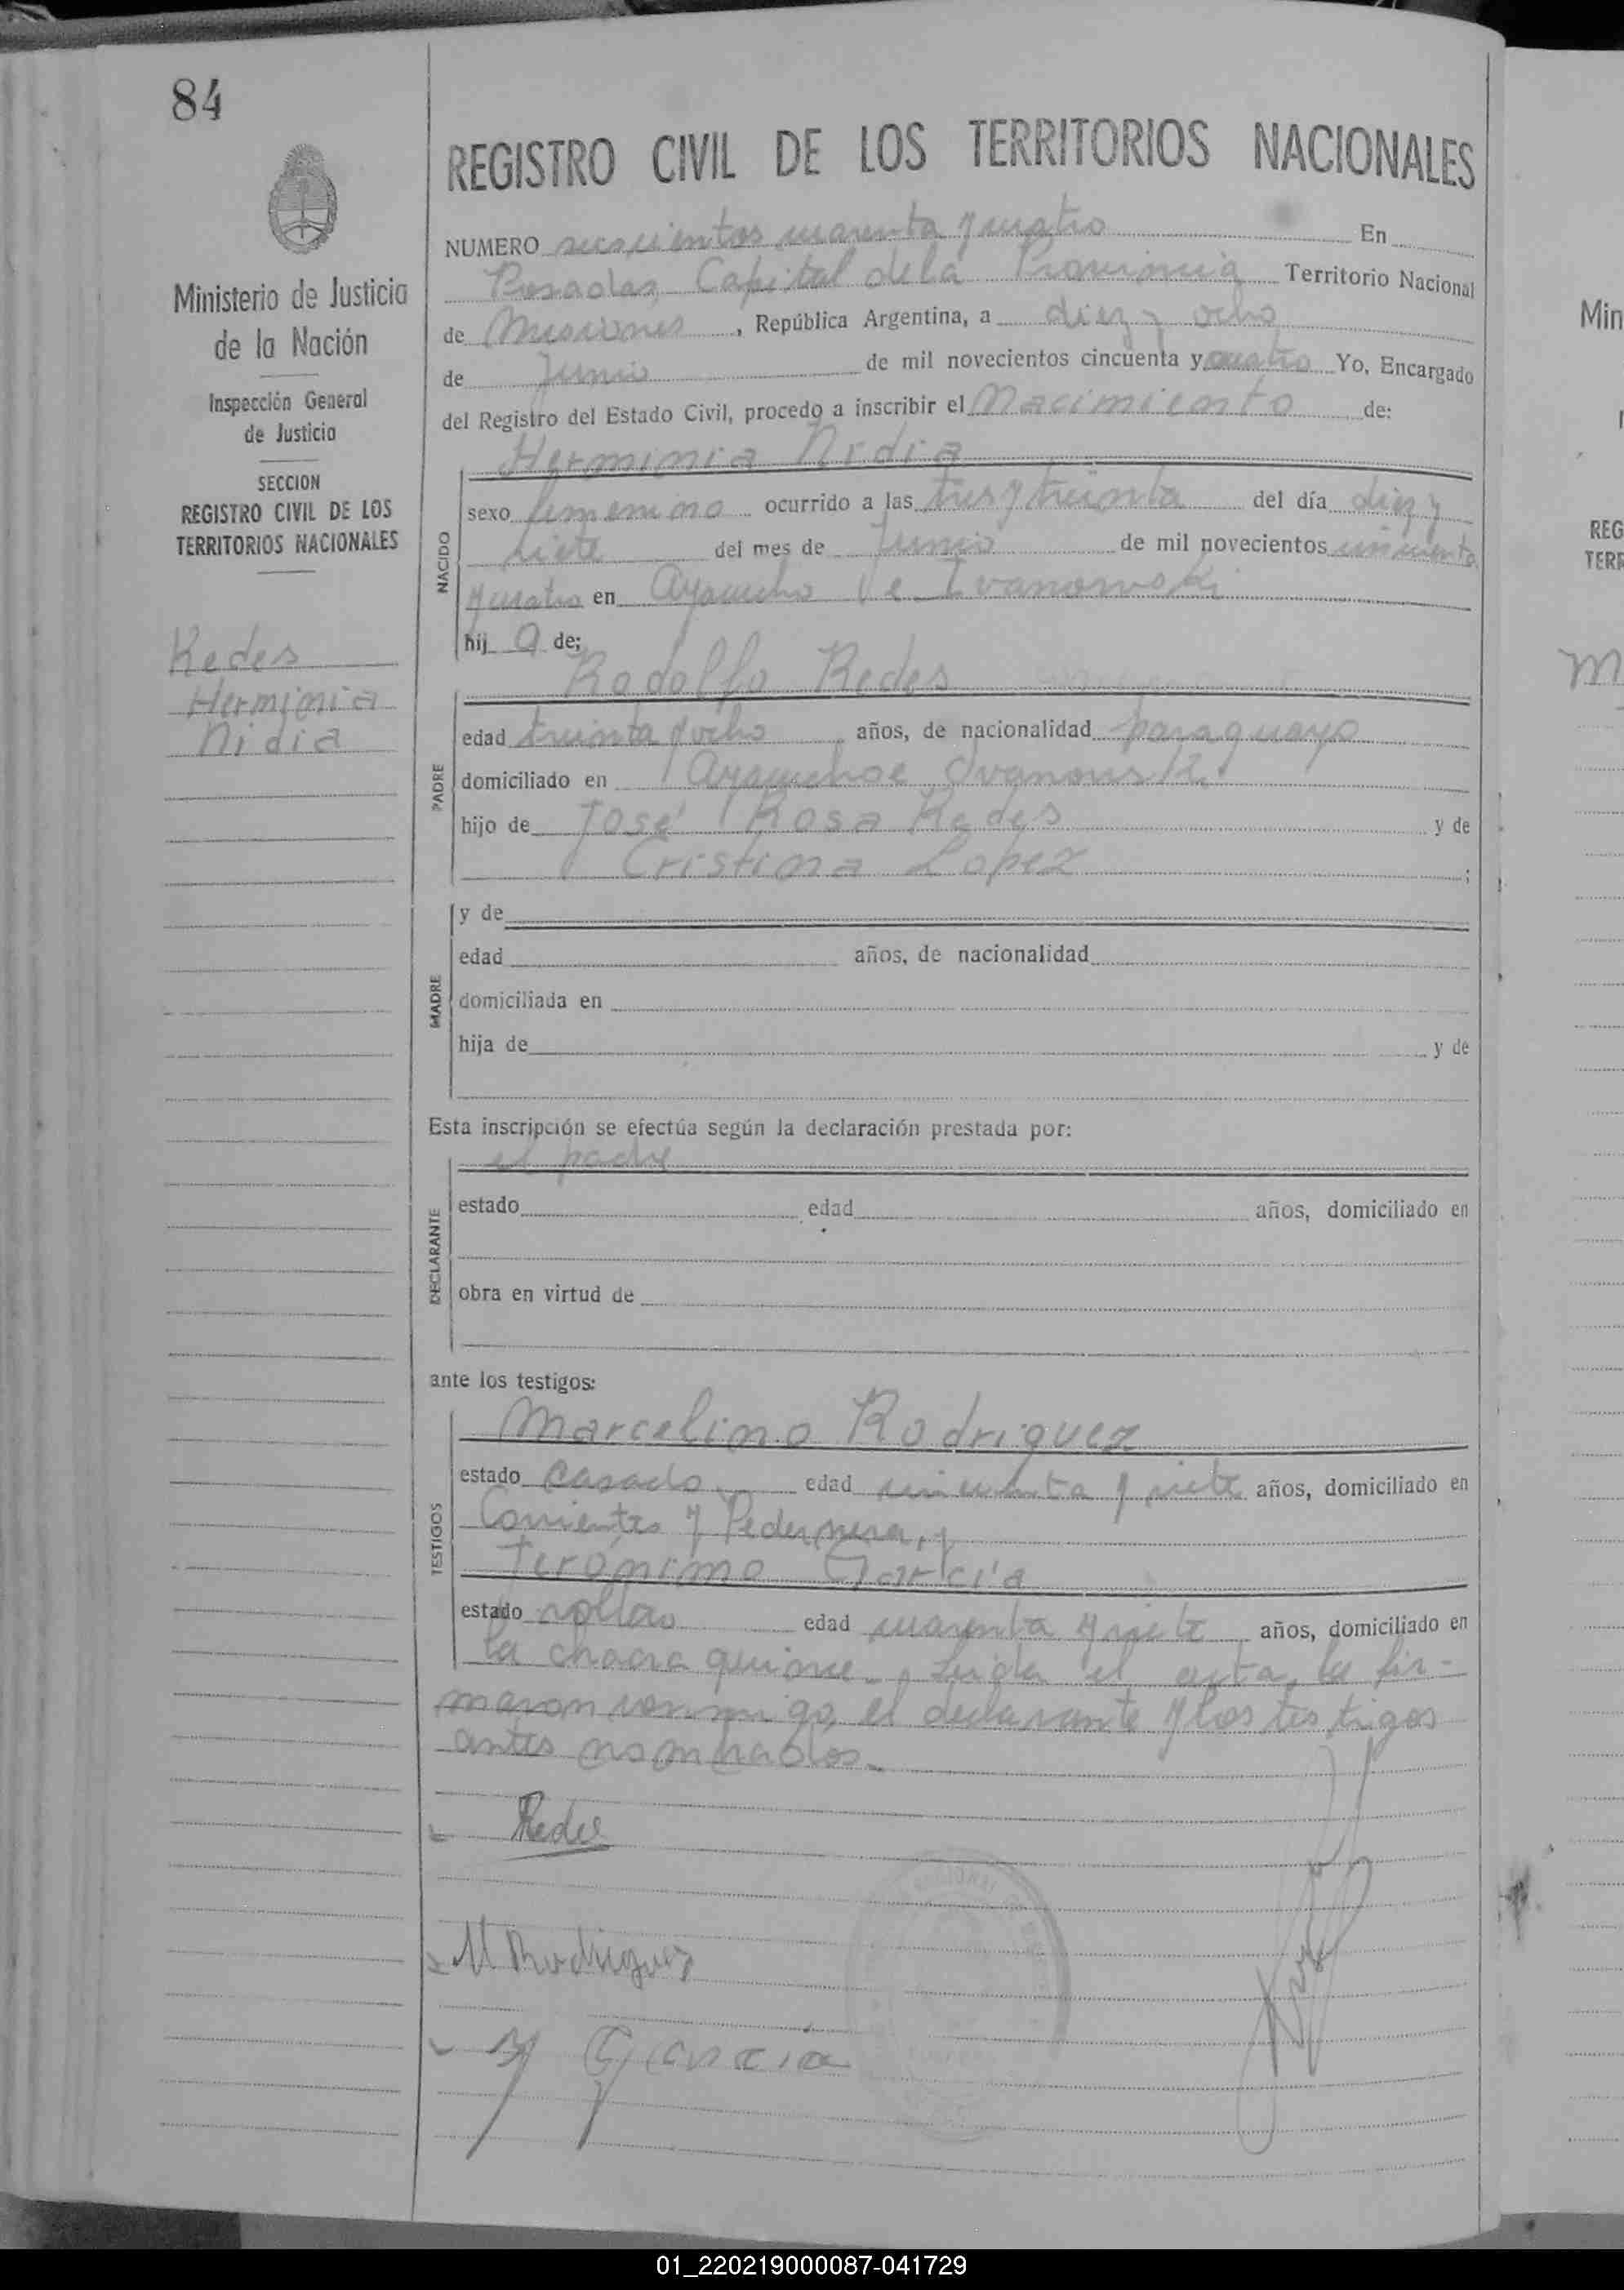 84
REGISTRO CIVIL DE LOS TERRITORIOS NACIONALES
Ministerio de Justicia
de la Nación
Inspección General
de Justicia
SECCION
REGISTRO CIVIL DE LOS
TERRITORIOS NACIONALES
Redes
Herminia
Nidia
NUMERO seiscientos cuarenta y cuatro En
Posadas, Capital de la Provincia Territorio Nacional
de Misiones, República Argentina, a diez y ocho
de Junio de mil novecientos cincuenta y cuatro Yo, Encargado
del Registro del Estado Civil, procedo a inscribir el Nacimiento de:
Herminia Nidia
NACIDO
sexo femenino ocurrido a las tres y treinta del día diez y
siete del mes de Junio de mil novecientos cincuenta
y cuatro en Ayacucho e Ivanowski
hija de;
Rodolfo Redes
PADRE
edad treinta y ocho años, de nacionalidad paraguayo
domiciliado en Ayacucho e Ivanowski
hijo de José Rosa Redes y de
Cristina Lopez ;
MADRE
y de
edad años, de nacionalidad
domiciliada en
hija de y de
Esta inscripción se efectúa según la declaración prestada por:
el padre
DECLARANTE
estado edad años, domiciliado en
obra en virtud de
ante los testigos:
Marcelino Rodriguez
TESTIGOS
estado casado edad cincuenta y siete años, domiciliado en
Corrientes y Pedernera, y
Jerónimo García
estado soltero edad cuarenta y siete años, domiciliado en
la chacra quince. Leida el acta, la fir-
maron conmigo, el declarante y los testigos
antes nombrados.
Redes
M Rodriguez
J Garcia
Min
REG
TERR
M
01_220219000087-041729